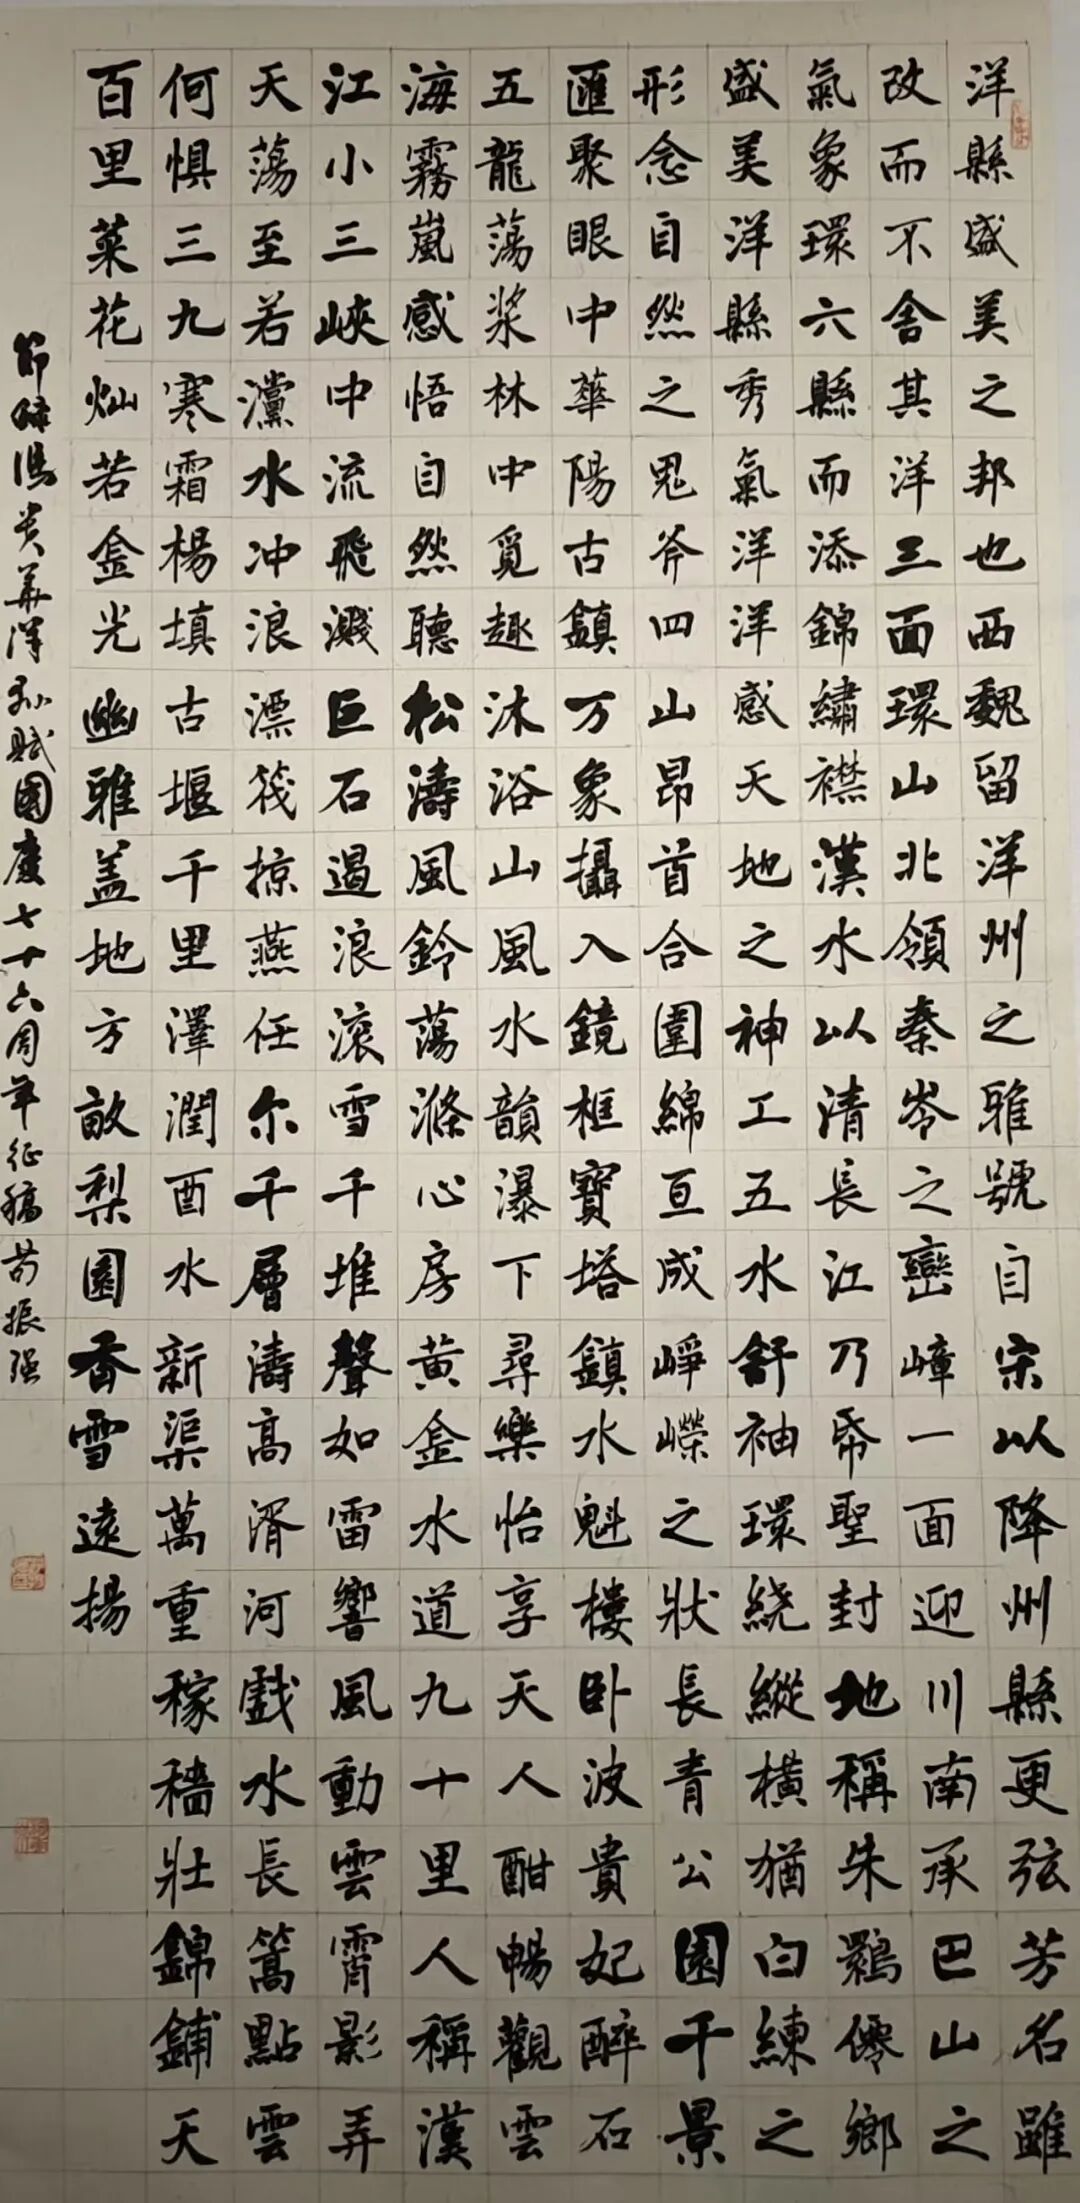 洋縣盛美之邦也西魏留洋州之雅號自宋以降州縣更弦芳名雖
改而不舍其洋三面環山北領秦岺之巒嶂一面迎川南承巴山之
氣象環六縣而添錦繡襟漢水以清長江乃帋聖封地稱朱鷄僊鄉
盛美洋縣秀氣洋洋感天地之神工五水舒袖環绕縱橫猶白練之
形念自然之鬼斧四山昂首合圍綿亘成崢嶸之狀長青公園千景
匯聚眼中華陽古鎮万象攝入鏡框寶塔鎮水魁樓卧波貴妃醉石
五龍蕩漿林中覓趣沐浴山風水韻瀑下尋樂怡享天人酣暢觀雲
海霧嵐感悟自然聽松濤風鈴蕩滌心房黄金水道九十里人稱漢
江小三峽中流飛濺巨石遏浪滚雪千堆聲如雷響風動雲霄影弄
天蕩至若灙水冲浪漂筏掠燕任尔千層濤高湑河戲水長篙點雲
何惧三九寒霜楊填古堰千里澤潤酉水新渠萬重稼穡壯錦鋪天
百里菜花灿若金光幽雅盖地方畝梨園香雪遠揚
節録馮貴華洋縣賦國慶七十六周年征稿苟振强